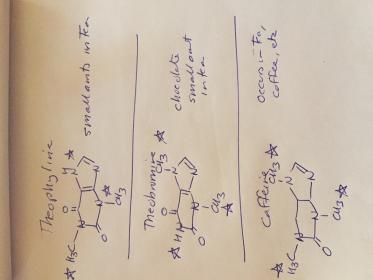 Theophylline
small amts in tea
H
N
N
O
N
N
H3C
O
CH3
Theobromine
chocolate
small amt
in tea
CH3
N
N
O
HN
N
O
CH3
Caffeine
Occurs in tea,
coffee, etc
CH3
N
N
N
N
H3C
O
CH3